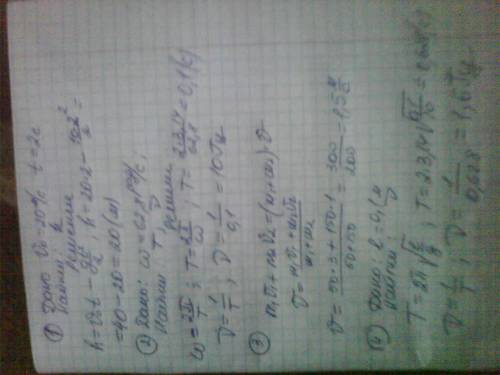 ① Дано: V₀ = 20 м/с t = 2с
Найти h
Решение
h = V₀t - gt²/2; h = 20·2 - 10·2²/2 =
= 40 - 20 = 20 (м)
② Дано: ω = 62,8 рад/с;
Найти: T, ν Решение
ω = 2π/T; T = 2π/ω; T = 2·3,14/62,8 = 0,1(с)
ν = 1/T; ν = 1/0,1 = 10 Гц
③ m₁v₁ + m₂v₂ = (m₁+m₂)·v
v = m₁v₁ + m₂v₂/m₁+m₂
v = 50·3 + 150·1/50+150 = 300/200 = 1,5 м/с
④ Дано: l = 0,1 м
Найти ν
T = 2π√l/g; T = 2·3,14√0,1/10 = 0,628(с)
ν = 1/T; ν = 1/0,628 = 1,6 Гц